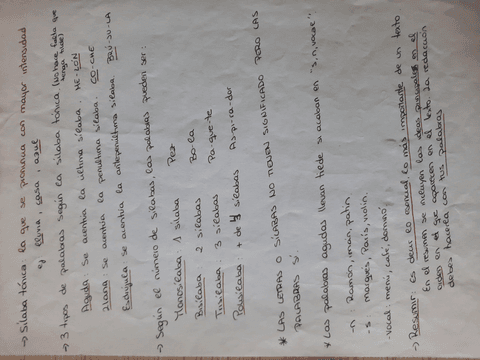 → Sílaba tónica la que se pronuncia con mayor intensidad
ej lluvia, casa, azul
→ 3 tipos de palabras según la sílaba tónica (No hace falta que tenga tilde)
Aguda: se acentúa la última sílaba. ME-LÓN
Llana: se acentúa la penúltima sílaba. CO-CHE
Esdrújula se acentúa la antepenúltima sílaba.
→ Según el número de sílabas, las palabras pueden ser:
Monosílaba 1 sílaba Paz
Bisílaba 2 sílabas Bo-la
Trisílaba: 3 sílabas Pa-que-te
Polisílaba + de 4 sílabas As-pi-ra-dor
* LAS LETRAS O SÍLABAS NO TIENEN SIGNIFICADO PERO LAS
PALABRAS SÍ
* Las palabras agudas llevan tilde si acaban en "s, n, vocal".
-n Ramón,
-s marqués, París,
-vocal: menú, café, dominó
→ Resumir: Es decir lo esencial lo más importante de un texto
En el resumen se incluyen las ideas principales en el
orden en el que aparecen en el texto. La redacción
debes hacerla con tus palabras